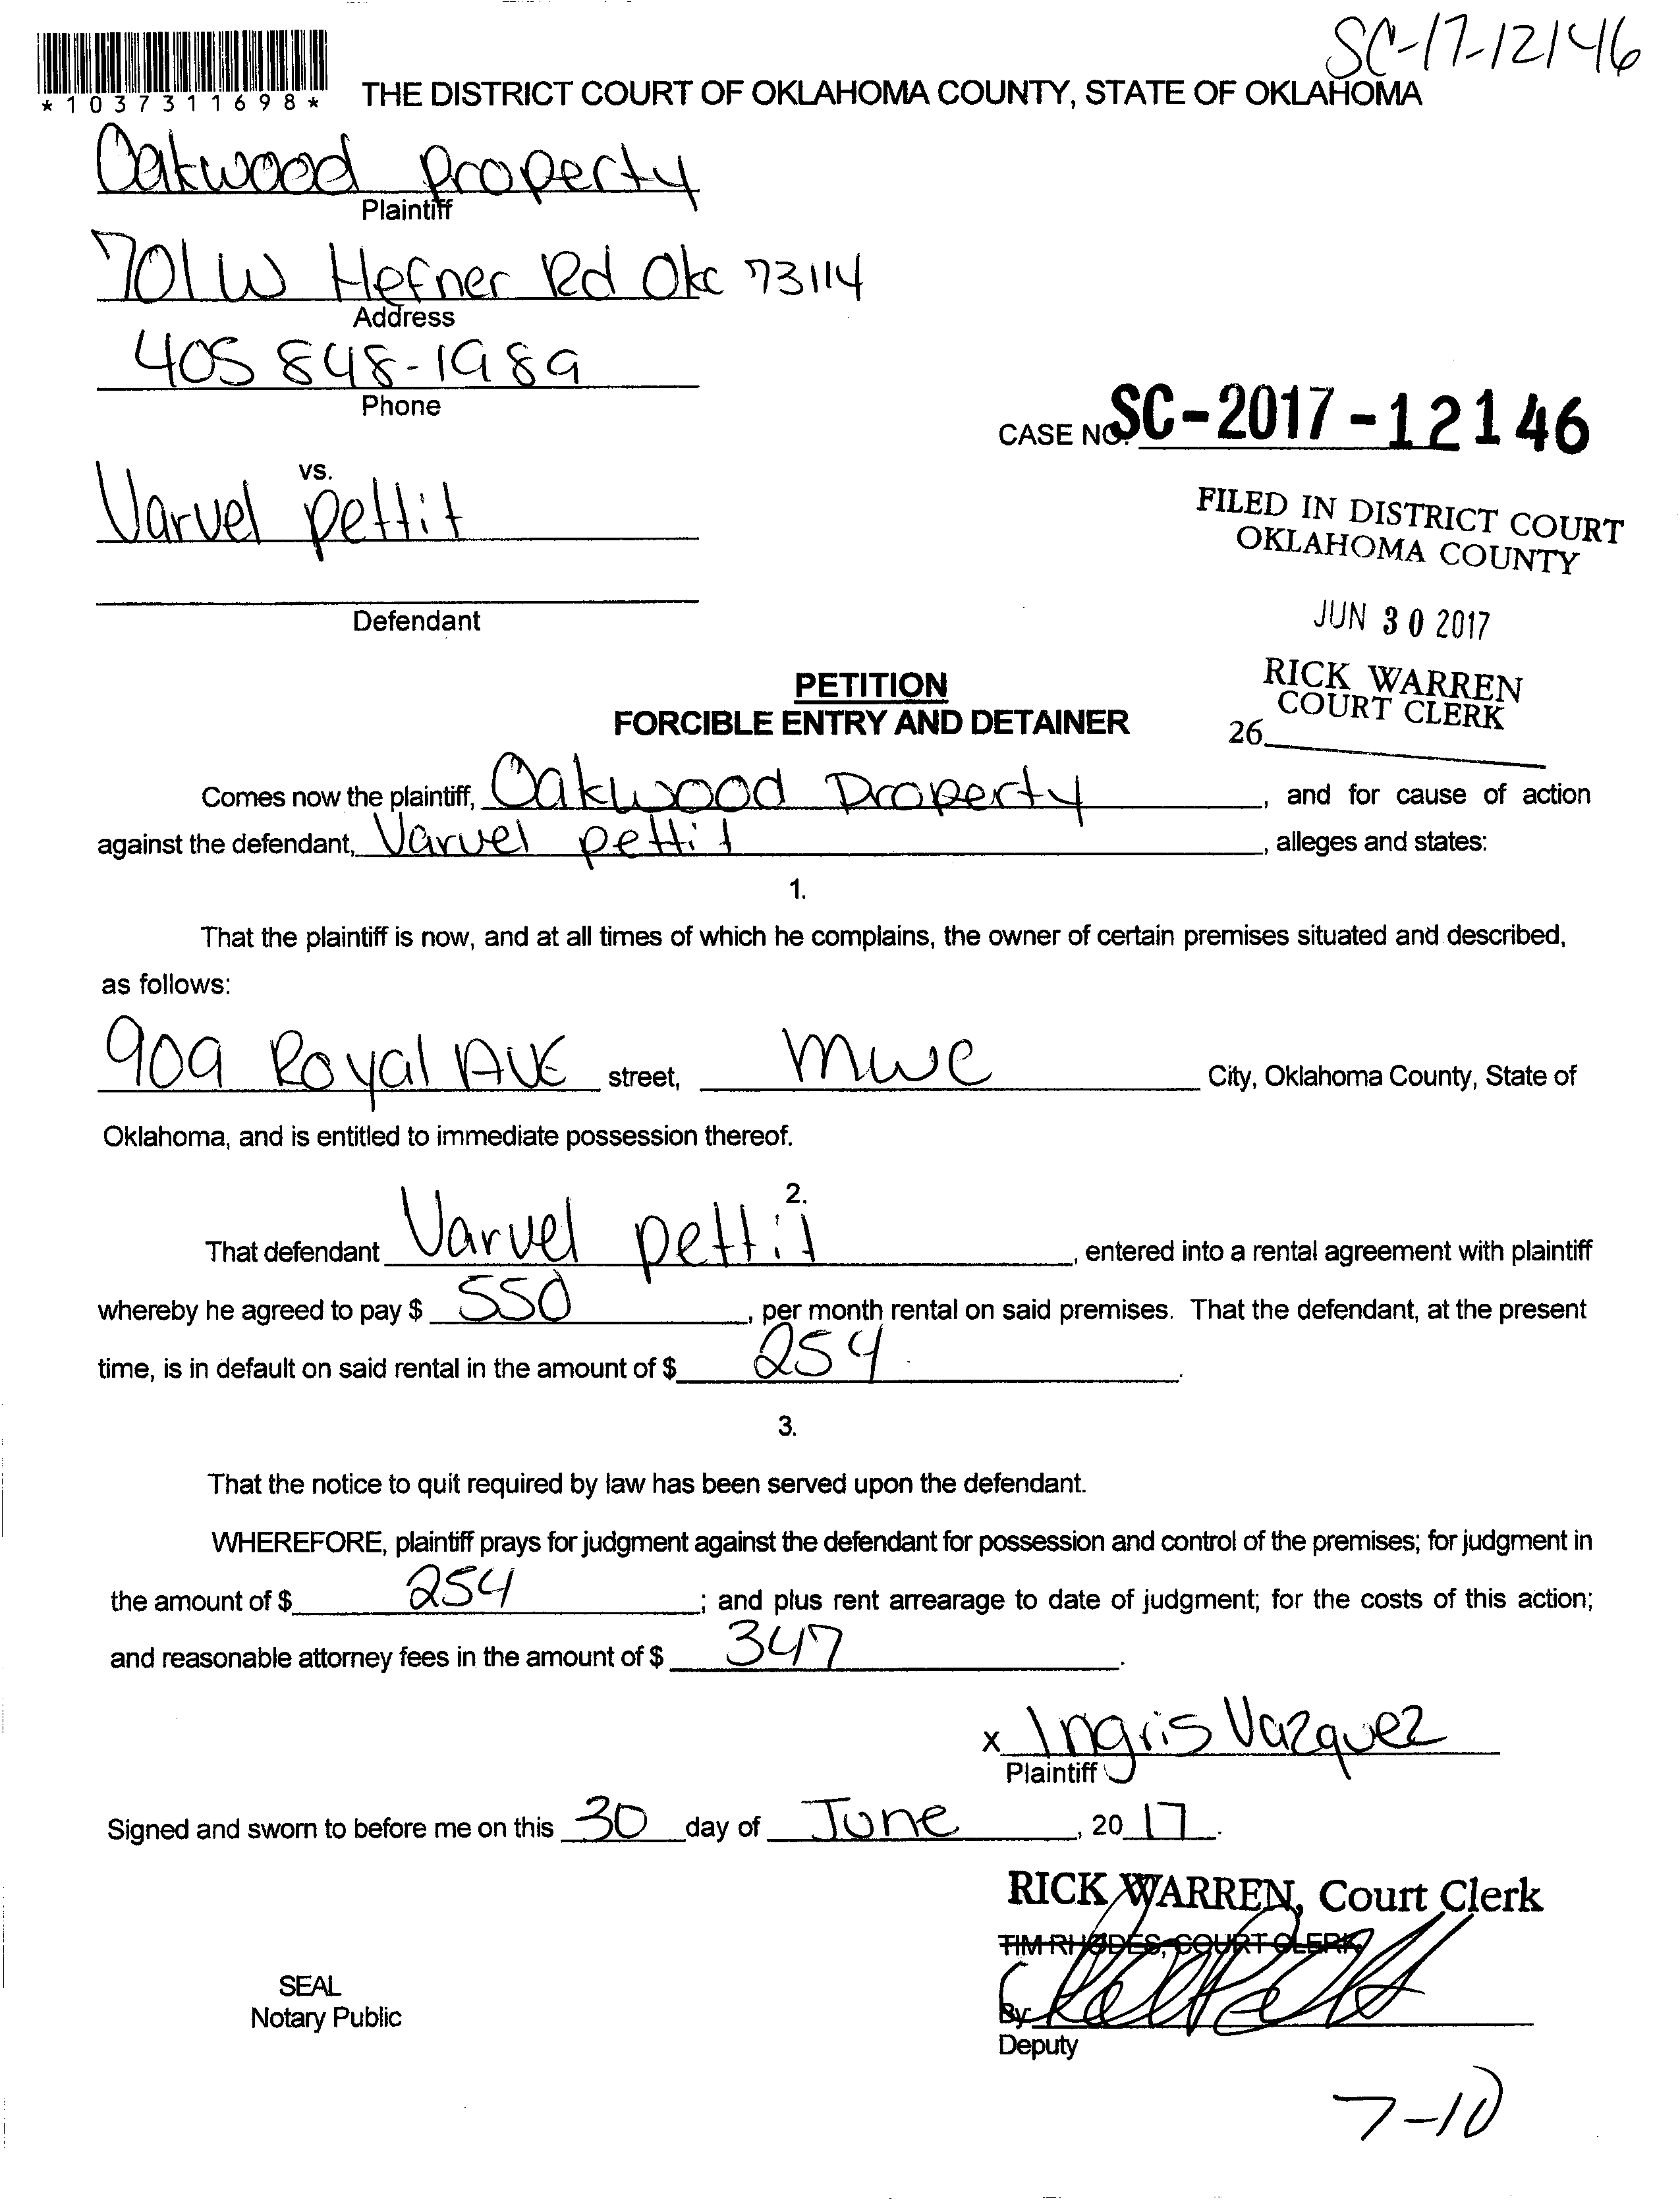 SC-17-12146
*1037311698*
THE DISTRICT COURT OF OKLAHOMA COUNTY, STATE OF OKLAHOMA
Oakwood property
Plaintiff
701 W Hefner Rd Okc 73114
Address
405 848-1989
Phone
CASE NO. SC-2017-12146
vs.
Varvel pettit
Defendant
FILED IN DISTRICT COURT
OKLAHOMA COUNTY
JUN 30 2017
RICK WARREN
COURT CLERK
26
PETITION
FORCIBLE ENTRY AND DETAINER
Comes now the plaintiff, Oakwood Property, and for cause of action
against the defendant, Varvel pettit, alleges and states:
1.
That the plaintiff is now, and at all times of which he complains, the owner of certain premises situated and described,
as follows:
909 Royal AVE street, mwc City, Oklahoma County, State of
Oklahoma, and is entitled to immediate possession thereof.
2.
That defendant Varvel pettit, entered into a rental agreement with plaintiff
whereby he agreed to pay $ 550, per month rental on said premises. That the defendant, at the present
time, is in default on said rental in the amount of $ 254.
3.
That the notice to quit required by law has been served upon the defendant.
WHEREFORE, plaintiff prays for judgment against the defendant for possession and control of the premises; for judgment in
the amount of $ 254; and plus rent arrearage to date of judgment; for the costs of this action;
and reasonable attorney fees in the amount of $ 347.
x Ingris Vazquez
Plaintiff
Signed and sworn to before me on this 30 day of June, 20 17.
RICK WARREN, Court Clerk
TIM RHODES, COURT CLERK
By
Deputy
SEAL
Notary Public
7-10